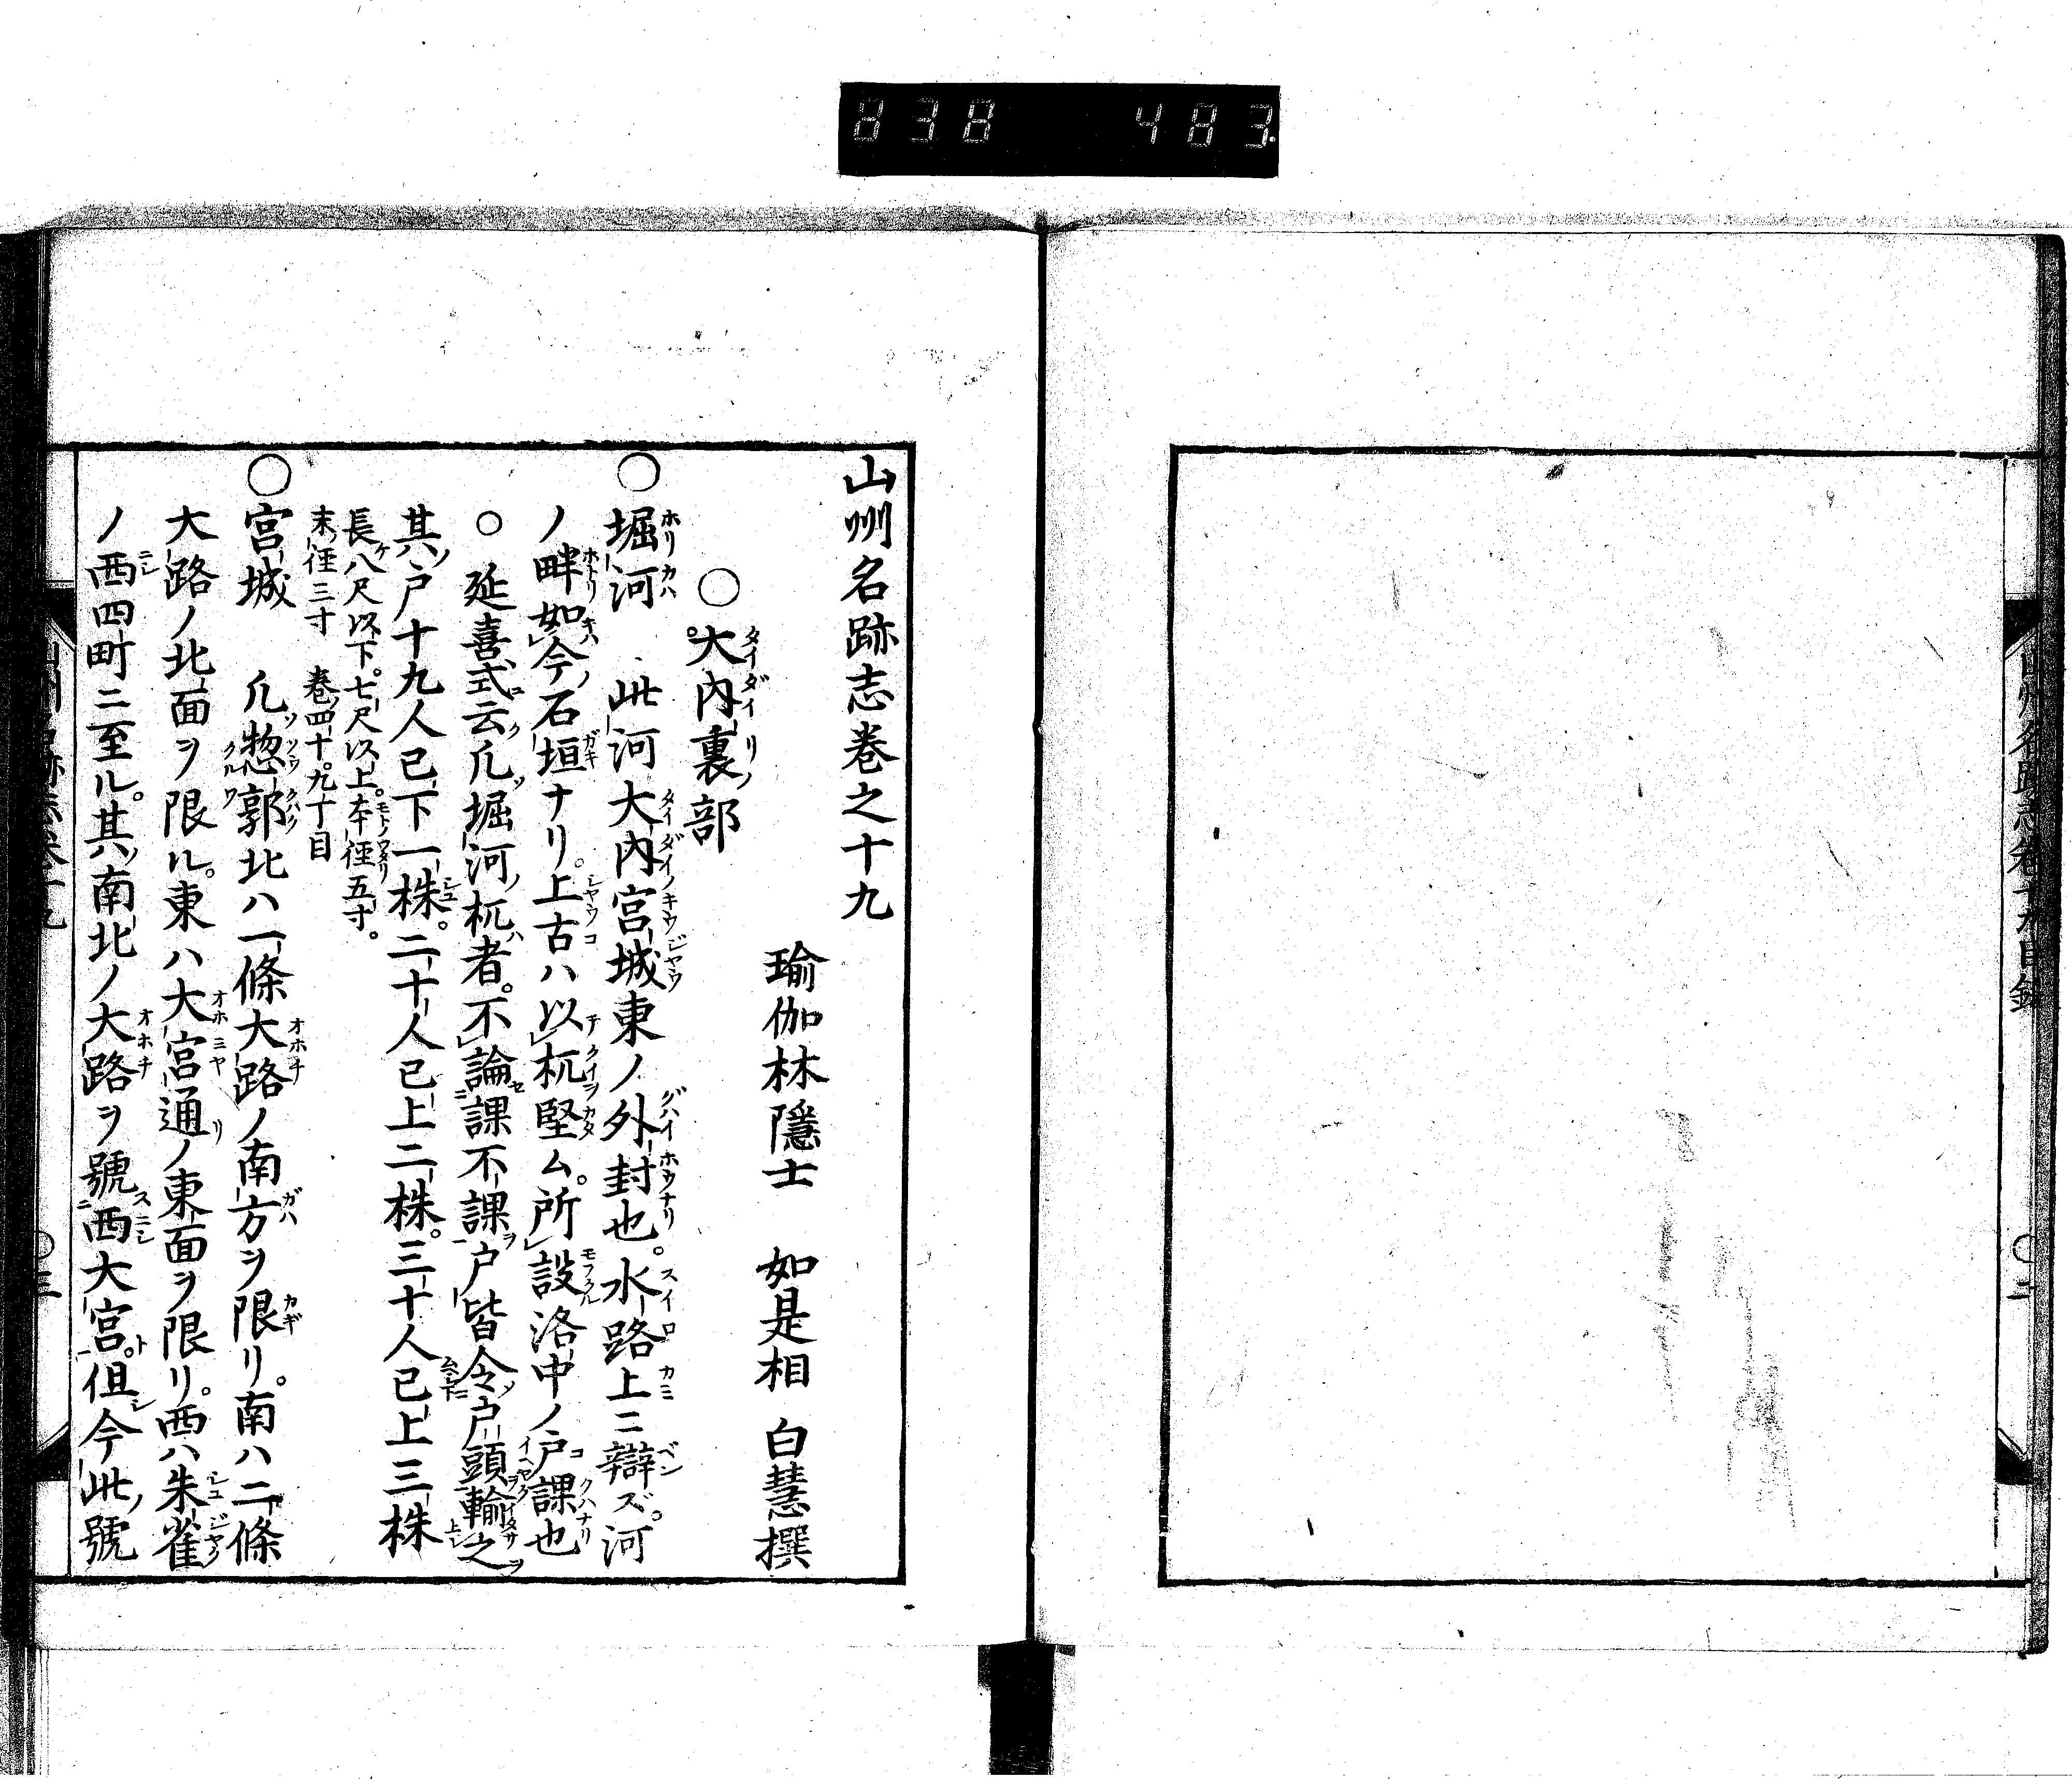 838 483
山州名跡志卷之十九
瑜伽林隱士 如是相 白慧撰
○大内裏ノ部
○堀河 此河大内宮城東ノ外封也。水路上ニ辯ズ。河
ノ畔如今ノ石垣ナリ。上古ハ以杭堅ム。所設洛中ノ戸課也
○延喜式云凡堀河ノ杭者。不論課不課戸皆令戸頭輸之
其ノ戸十九人已下一株。二十人已上二株。三十人已上三株
長八尺以下。七尺以上。本徑五寸。
末徑三寸 卷四十九丁目
○宮城 凡惣郭北ハ一條大路ノ南方ヲ限リ。南ハ二條
大路ノ北面ヲ限ル。東ハ大宮通ノ東面ヲ限リ。西ハ朱雀
ノ西四町ニ至ル。其ノ南北ノ大路ヲ號西大宮。但今此ノ號